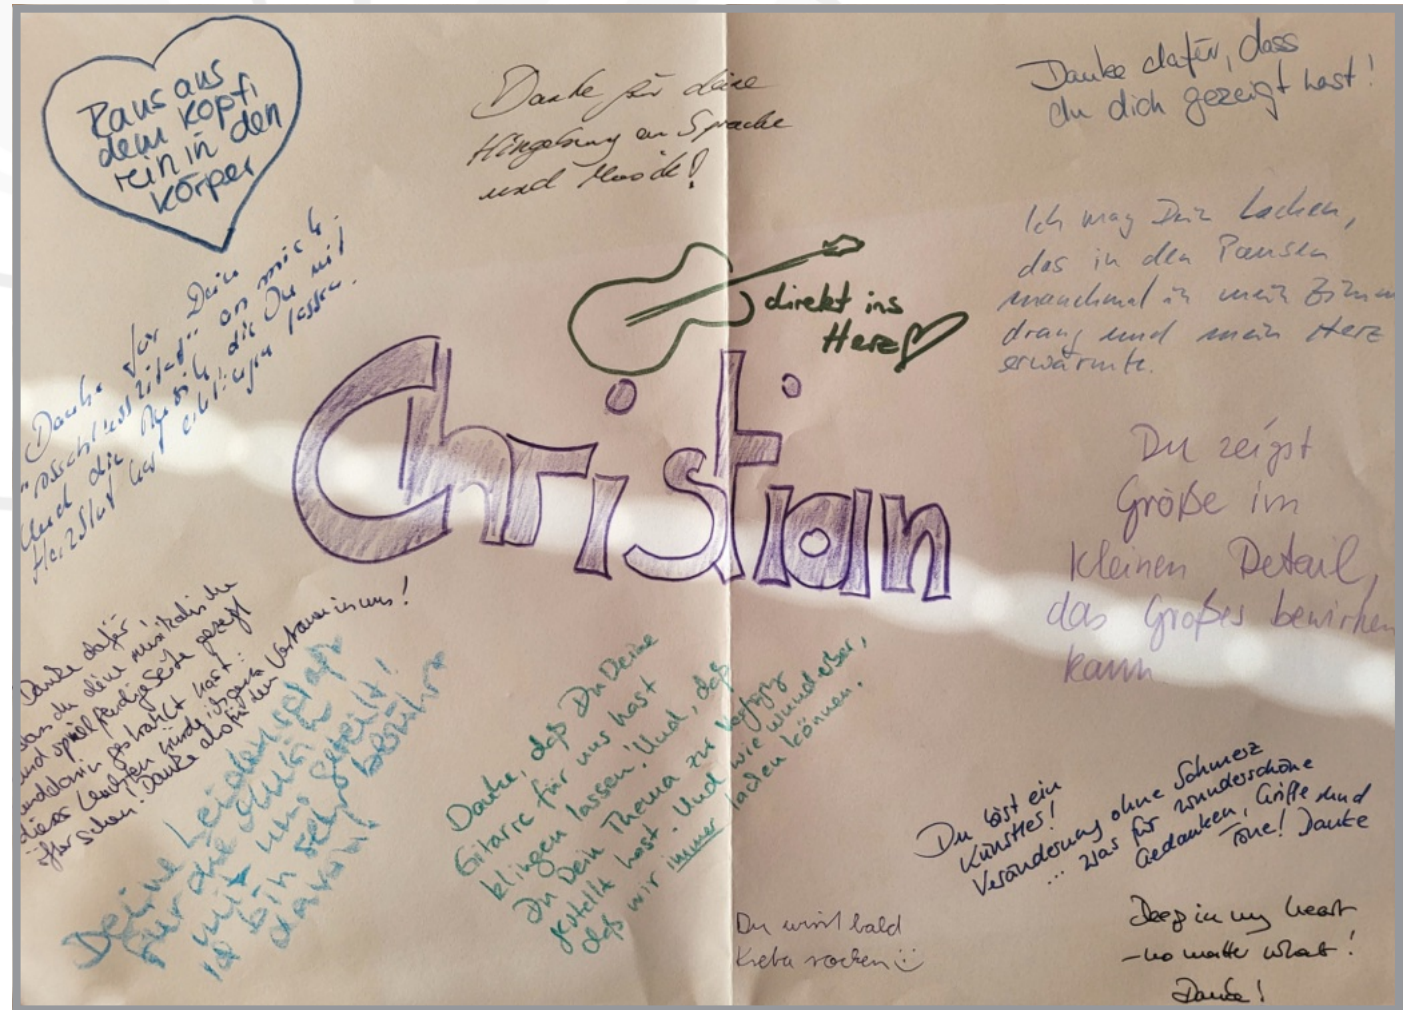 Raus aus
dem Kopf!
rein in den
Körper
Danke für deine
Hingebung an Sprache
und Musik!
Danke dafür, dass
du dich gezeigt hast!
Ich mag Dein Lachen,
das in den Pausen
manchmal in mein
drang und mein Herz
erwärmte.
direkt ins
Herz
Christian
Danke für Dein
an mich.
Und die Musik, die Du mit
Herzblut hast erklingen lassen.
Du zeigst
Größe im
kleinen Detail,
das Großes bewirken
kann
Danke dafür,
dass du deine musikalische
und spielfreudige Seite gezeigt
und darin gestrahlt hast:
dieses Leuchten würde ich gern
öfter sehen! Danke also für dein Vertrauen in uns!
Deine Leidenschaft
für die Musik
mit uns geteilt!
Ich bin sehr berührt
davon!
Danke, daß Du Deine
Gitarre für uns hast
klingen lassen. Und, daß
Du Dein Thema zur Verfügung
gestellt hast. Und wie wunderbar,
daß wir immer lachen können.
Du bist ein
Künstler!
Veränderung ohne Schmerz
... was für wunderschöne
Gedanken, Griffe und
Töne! Danke
Du wirst bald
rocken
Deep in my heart
- no matter what!
Danke!